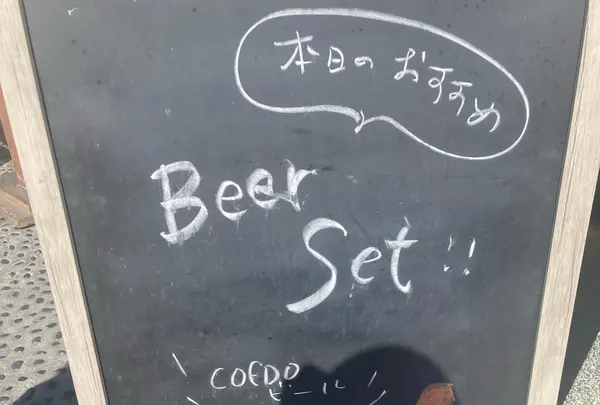 本日のおすすめ
Beer
Set !!
COEDO
ビール